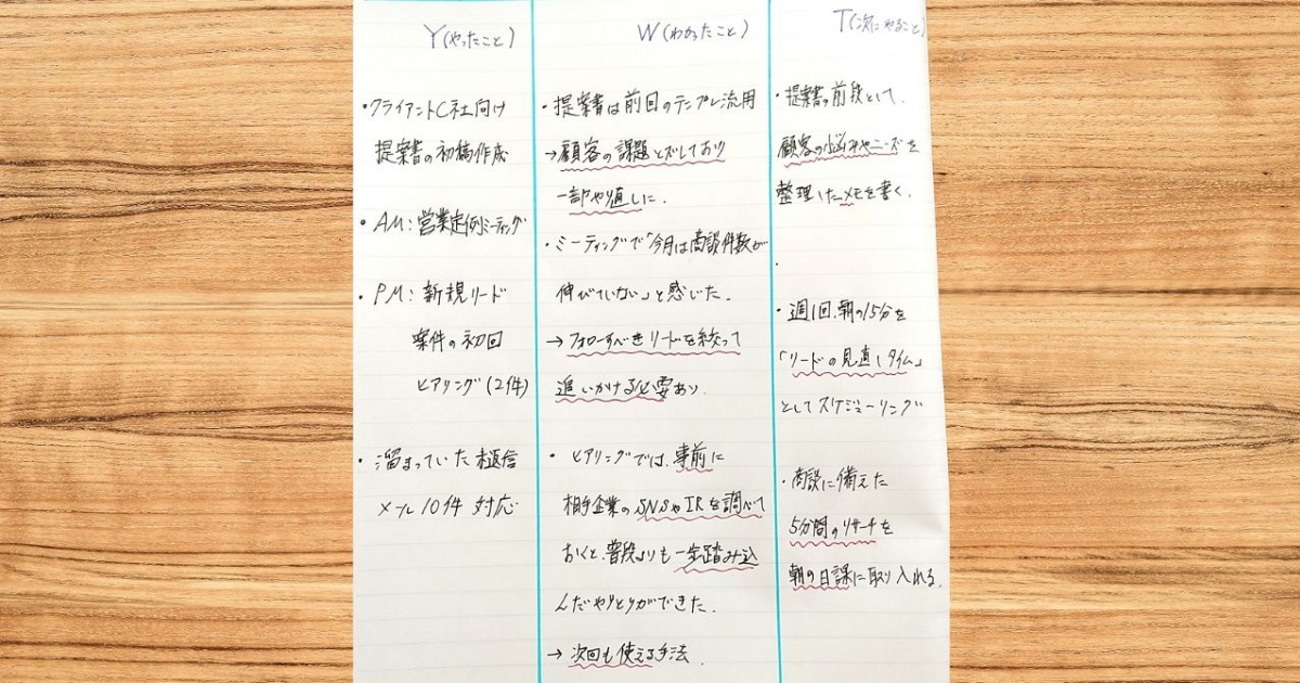 Y(やったこと)
・クライアントC社向け
提案書の初稿作成
・AM：営業定例ミーティング
・PM：新規リード
案件の初回
ヒアリング(2件)
・溜まっていた返信
メール10件対応
W(わかったこと)
・提案書は前回のテンプレ流用
→顧客の課題とズレしており
一部やり直しに.
・ミーティングで「今月は商談件数が
伸びていない」と感じた.
→フォローすべきリードを絞って
追いかける必要あり.
・ヒアリングでは、事前に
相手企業のSNSやIRを調べて
おくと、普段よりも一歩踏み込
んだやりとりができた.
→次回も使える手法.
T(次にやること)
・提案書の前段として.
顧客の悩みやニーズを
整理したメモを書く.
・
・週1回、朝の15分を
「リードの見直しタイム」
としてスケジューリング
・商談に備えた
5分間のリサーチを
朝の日課に取り入れる.